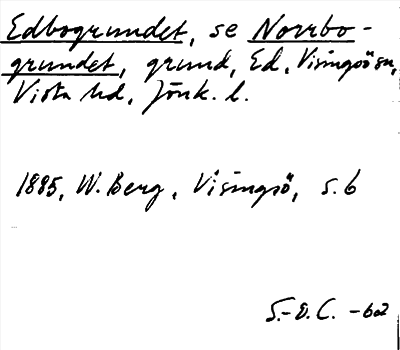 Edbogrundet, se Norrbo-
grundet, grund, Ed, Visingsö sn,
Vista hd, Jönk. l.
1885, W. Berg, Visingsö, s. 6
S.-E. C. -62